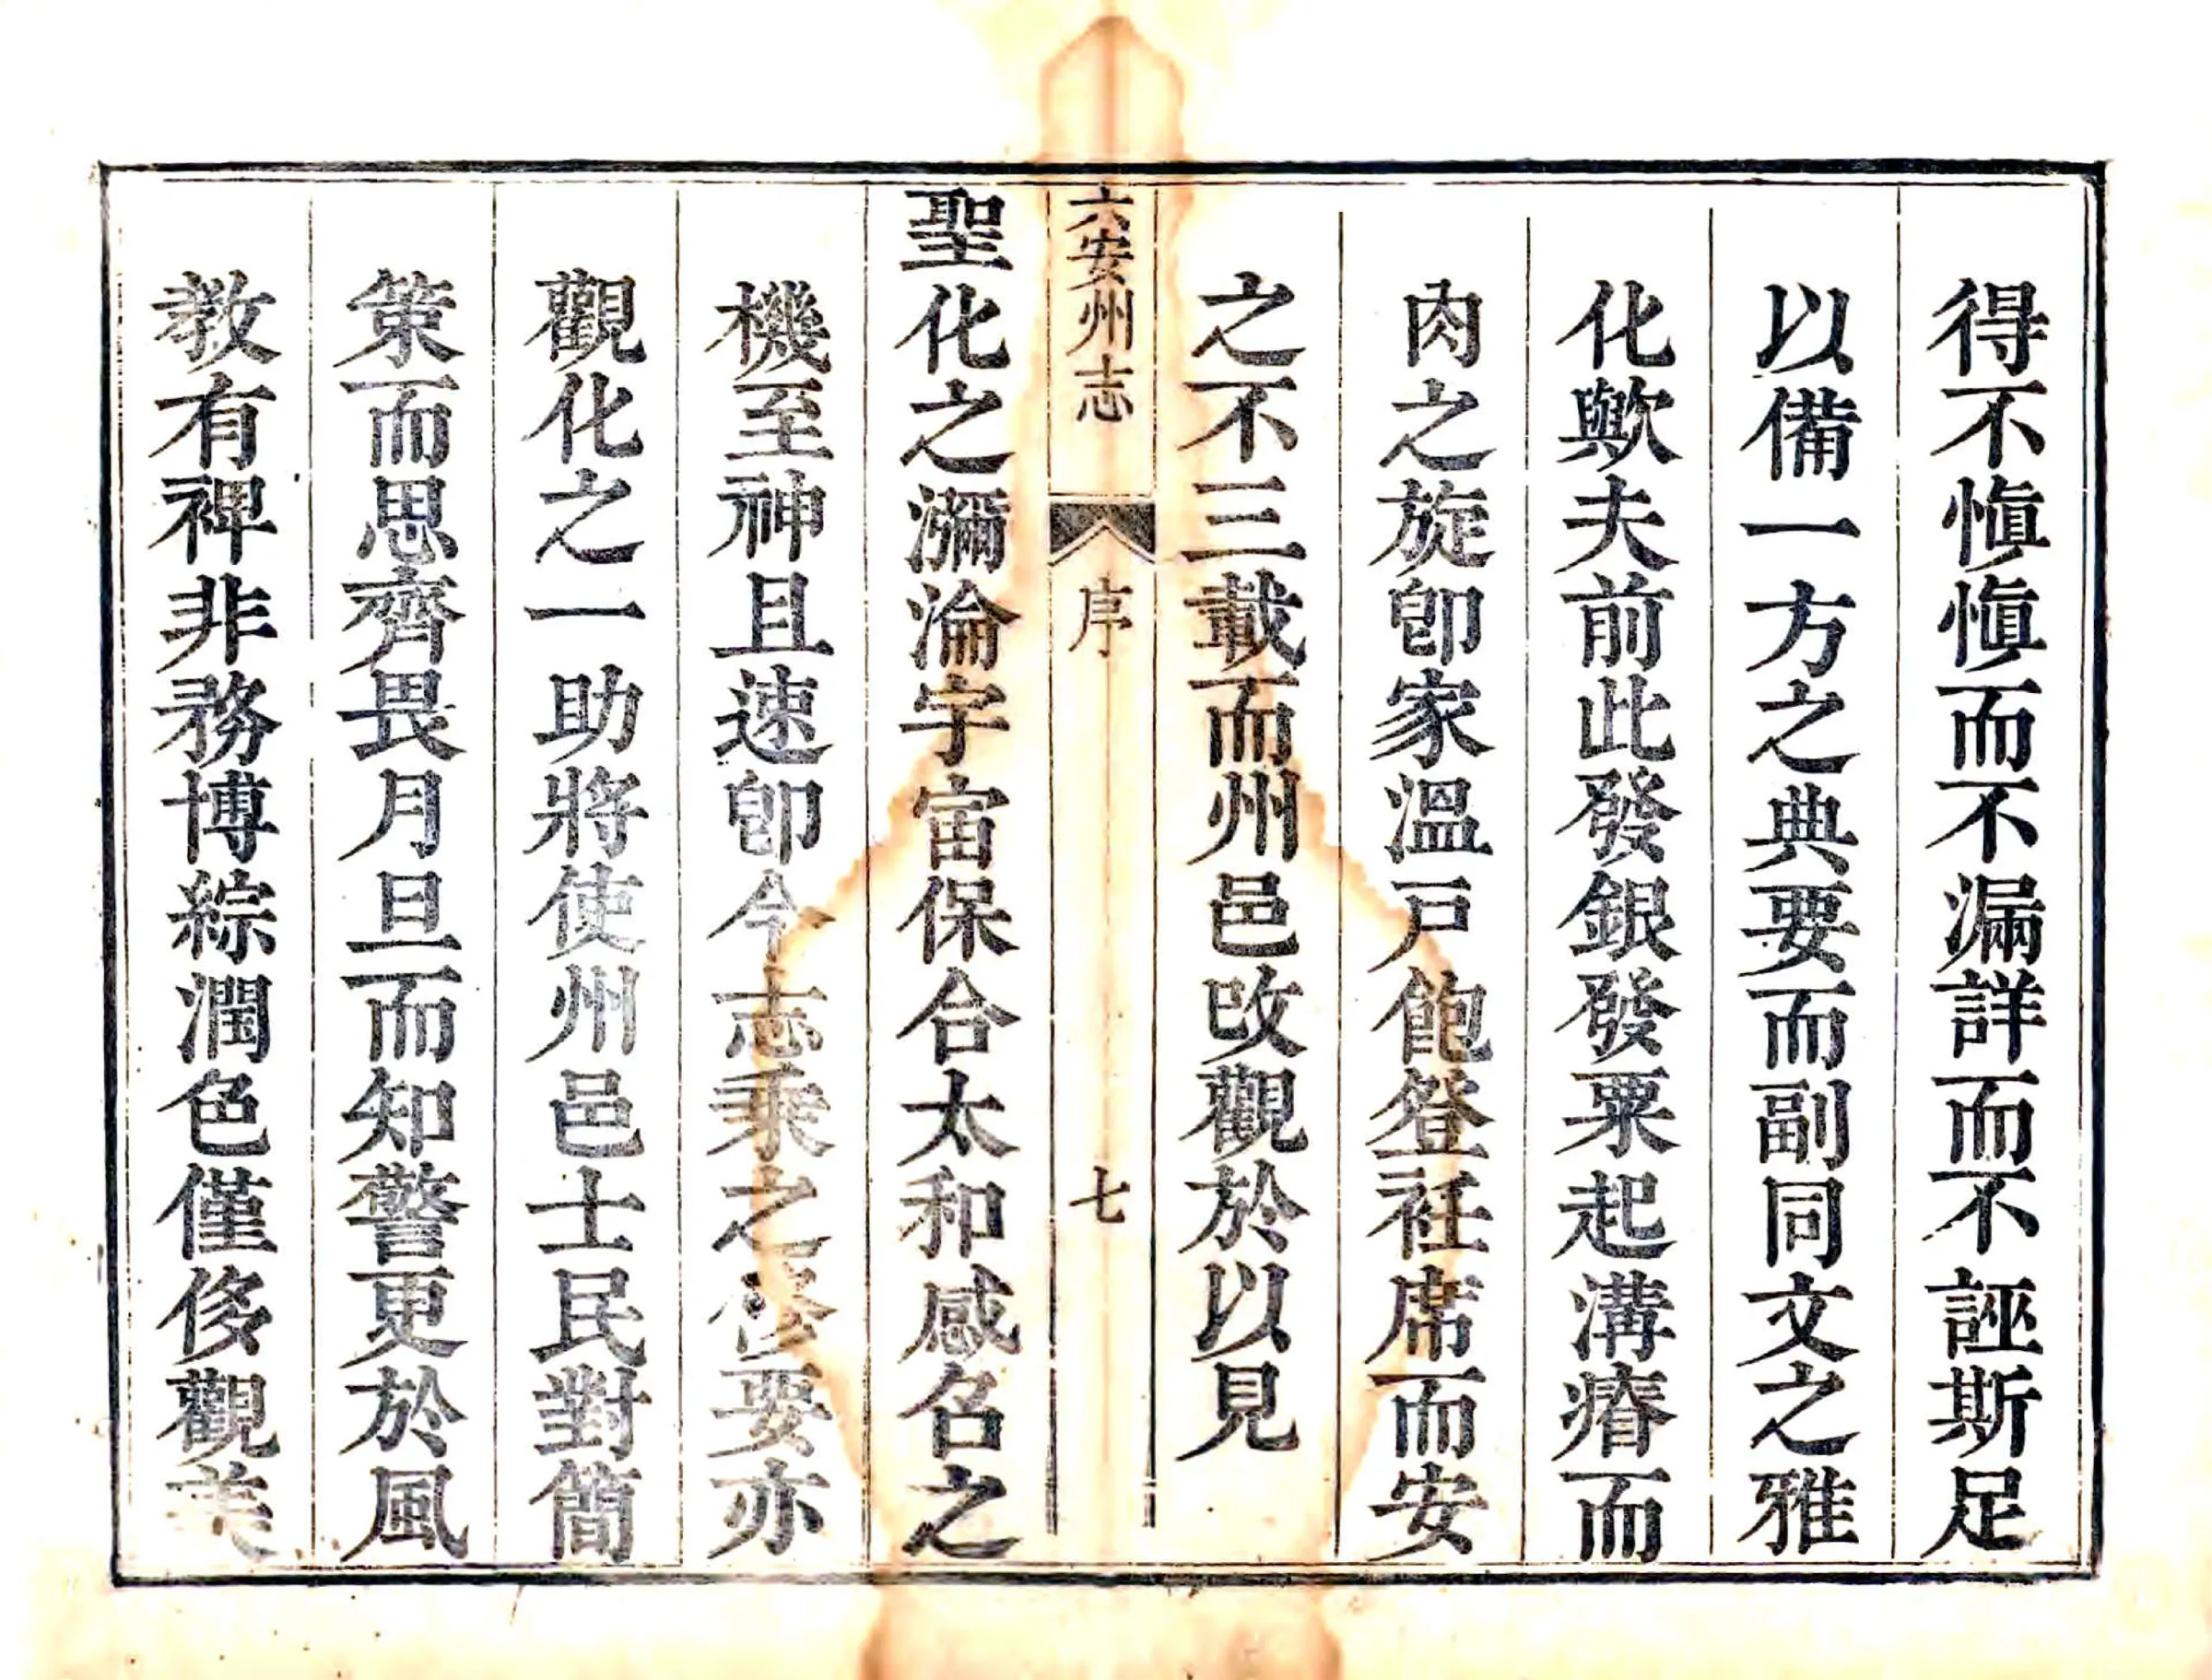 得不愼愼而不漏詳而不誣斯足
以備一方之典要而副同文之雅
化歟夫前此發銀發粟起溝瘠而
肉之旋卽家溫戸飽登袵席而安
之不三載而州邑改觀於以見
六安州志
序
七
聖化之瀰淪宇宙保合太和感名之
機至神且速卽今志乘之修要亦
觀化之一助將使州邑士民對簡
策而思齊畏月旦而知警更於風
教有裨非務博綜潤色僅侈觀美